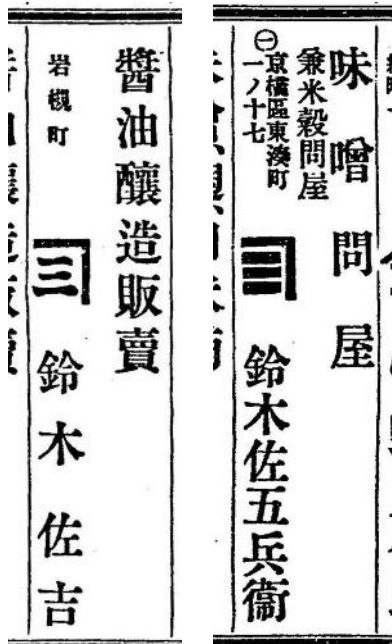 味噌問屋
兼米穀問屋
㊀京橋區東湊町
一ノ十七
三 鈴木佐五兵衞
醬油釀造販賣
岩槻町
三 鈴木佐吉